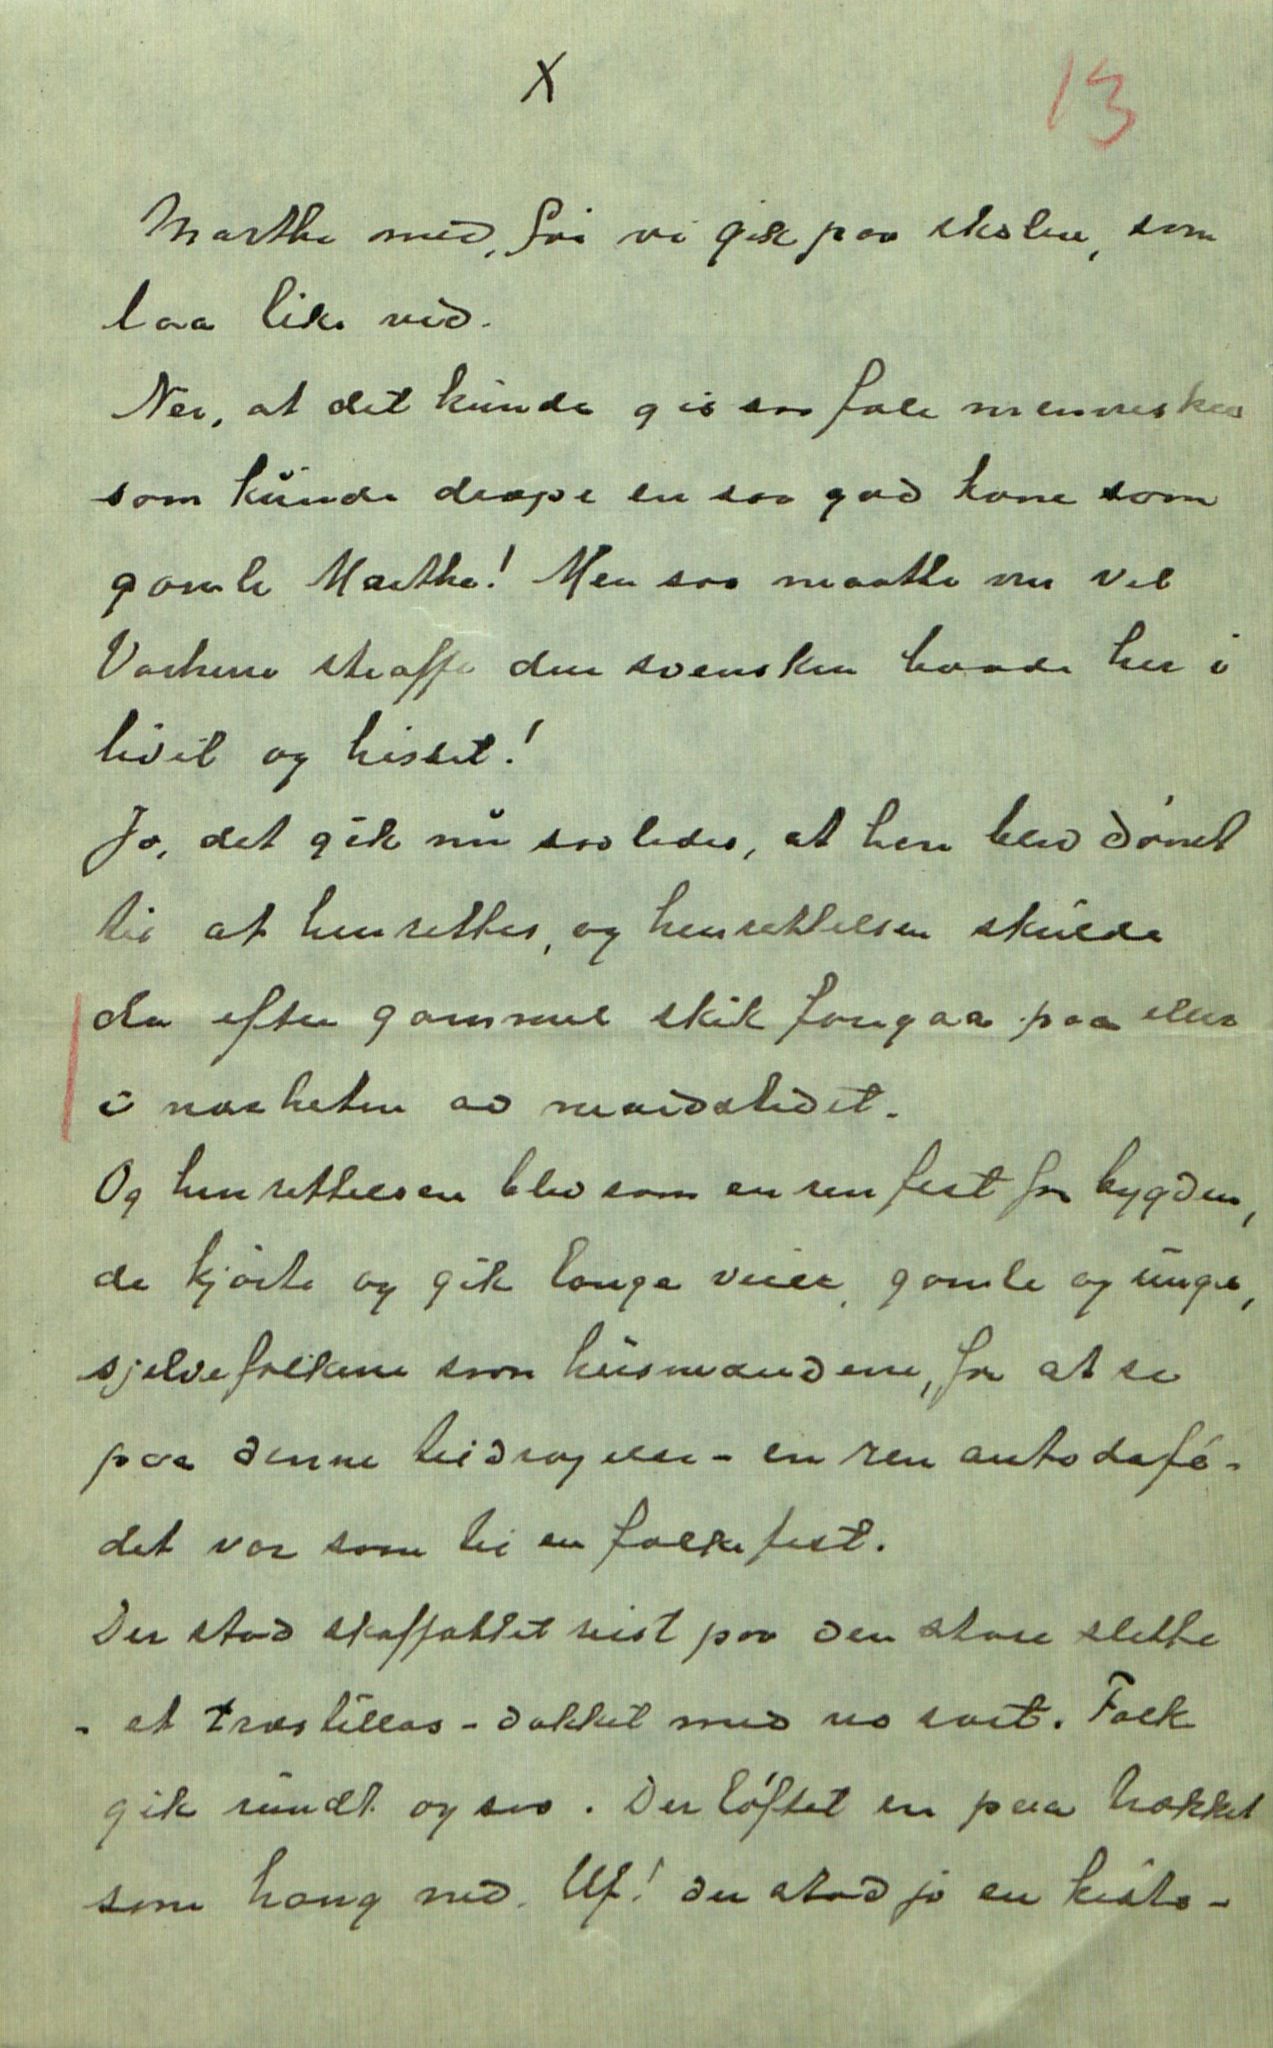 X
13
Marthe med, før vi gik paa skolen, som
laa like ved.
Nei, at det kunde gis saa fale mennesker
som kunde dræpe en saa god kone som
gamle Marthe! Men saa maatte nu vel
Vorherre straffe den svensken baade her i
livet og hisset!
Jo, det gik nu saaledes, at han blev dømt
til at henrettes, og henrettelsen skulde
da efter gammel skik foregaa paa eller
i nærheten av mordstedet.
Og henrettelsen blev som en ren fest for bygden,
de kjørte og gik lange veier, gamle og unge,
sjelvefolkene som husmændene, for at se
paa denne tildragelse - en ren autodafé -
det var som til en folkefest.
Der stod skaffottet reist paa den store slette
- et træstillas - dækket med no sort. Folk
gik rundt og saa. Der løftet en paa trækket
som hang ned. Uf! der stod jo en kiste -